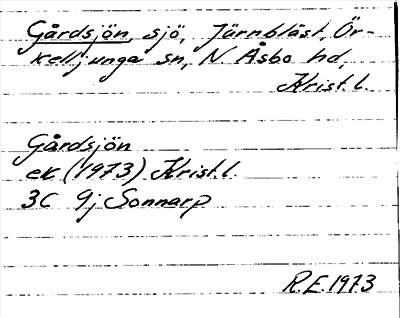 Gårdsjön, sjö, Järnbläst, Ör-
kelljunga sn, N Åsbo hd,
Krist.l.
Gårdsjön
ek (1973) Krist.l.
3C 9j Sonnarp
R.E. 1973